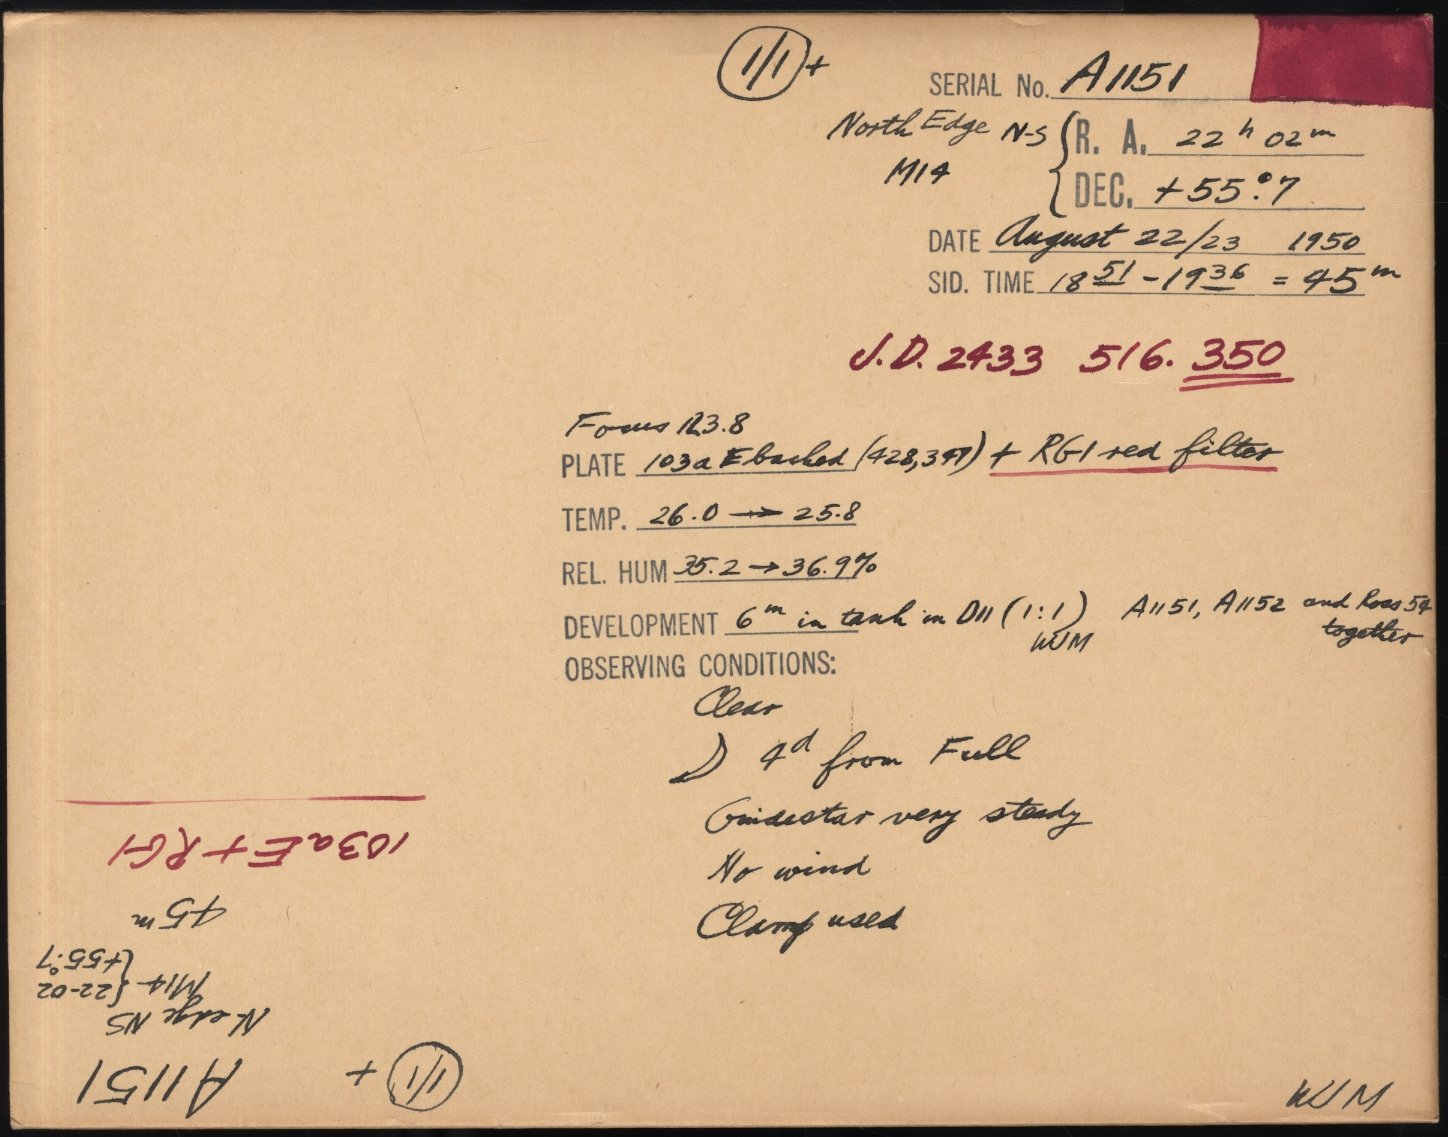 1/1 +
SERIAL No. A1151
North Edge N-S
M14
R. A. 22h 02m
DEC. +55°.7
DATE August 22/23 1950
SID. TIME 18 51 - 19 36 = 45m
J.D. 2433 516.350
Focus 123.8
PLATE 103a E backed (428,347) + RG1 red filter
TEMP. 26.0 → 25.8
REL. HUM 35.2 → 36.9%
DEVELOPMENT 6m in tank in D11 (1:1) A1151, A1152 and Ross 54
WJM together
OBSERVING CONDITIONS:
Clear
☽ 4d from Full
Guidestar very steady
No wind
Clamp used
WJM
1/1 +
A1151
N edge NS
M14 {22-02
{+55°.7
45m
103aE + RG1